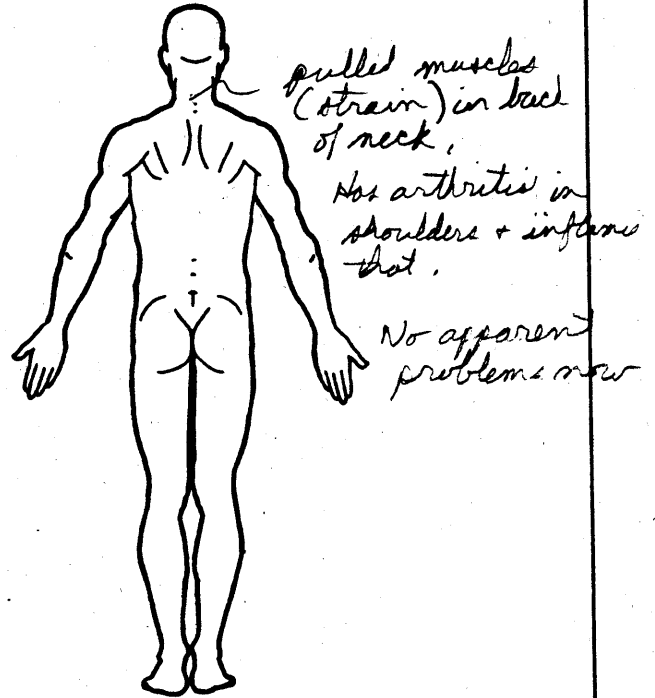 pulled muscles
(strain) in back
of neck.
Has arthritis in
shoulders + inflames
that.
No apparent
problems now